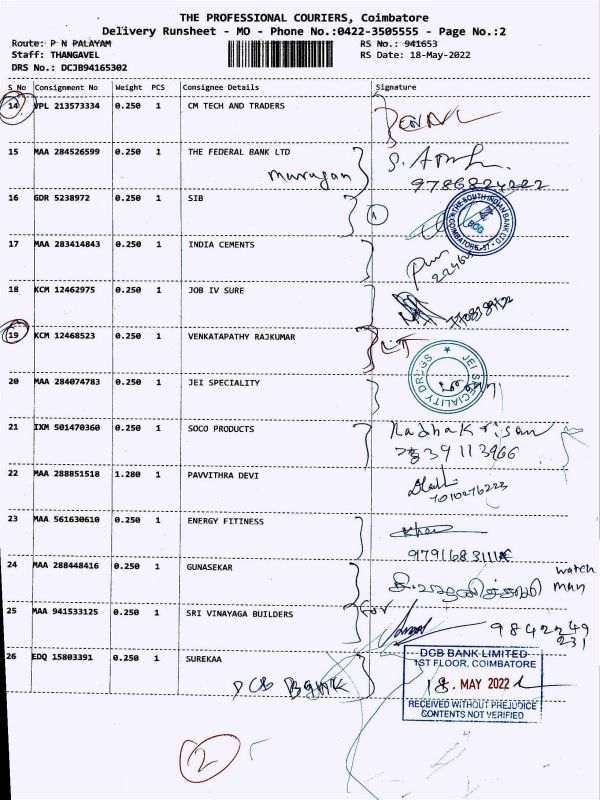 THE PROFESSIONAL COURIERS, Coimbatore
Delivery Runsheet - MO - Phone No.:0422-3505555 - Page No.:2
Route: P N PALAYAM RS No.: 941653
Staff: THANGAVEL RS Date: 18-May-2022
DRS No.: DCJB94165302
S No Consignment No Weight PCS Consignee Details Signature
14 VPL 213573334 0.250 1 CM TECH AND TRADERS
15 MAA 284526599 0.250 1 THE FEDERAL BANK LTD
Murugan
9786824222
16 GDR 5238972 0.250 1 SIB
THE SOUTH INDIAN BANK LTD
COIMBATORE
17 MAA 283414843 0.250 1 INDIA CEMENTS
18 KCM 12462975 0.250 1 JOB IV SURE
19 KCM 12468523 0.250 1 VENKATAPATHY RAJKUMAR
20 MAA 284074783 0.250 1 JEI SPECIALITY
JEI SPECIALITY DRUGS
21 IXM 501470360 0.250 1 SOCO PRODUCTS
Radhakrisan
22 MAA 288851518 1.280 1 PAVVITHRA DEVI
7010276223
23 MAA 561630610 0.250 1 ENERGY FITINESS
24 MAA 288448416 0.250 1 GUNASEKAR
watch
man
25 MAA 941533125 0.250 1 SRI VINAYAGA BUILDERS
for
9842249
231
26 EDQ 15803391 0.250 1 SUREKAA
DCB Bank
DCB BANK LIMITED
1ST FLOOR, COIMBATORE
18. MAY 2022
RECEIVED WITHOUT PREJUDICE
CONTENTS NOT VERIFIED
2